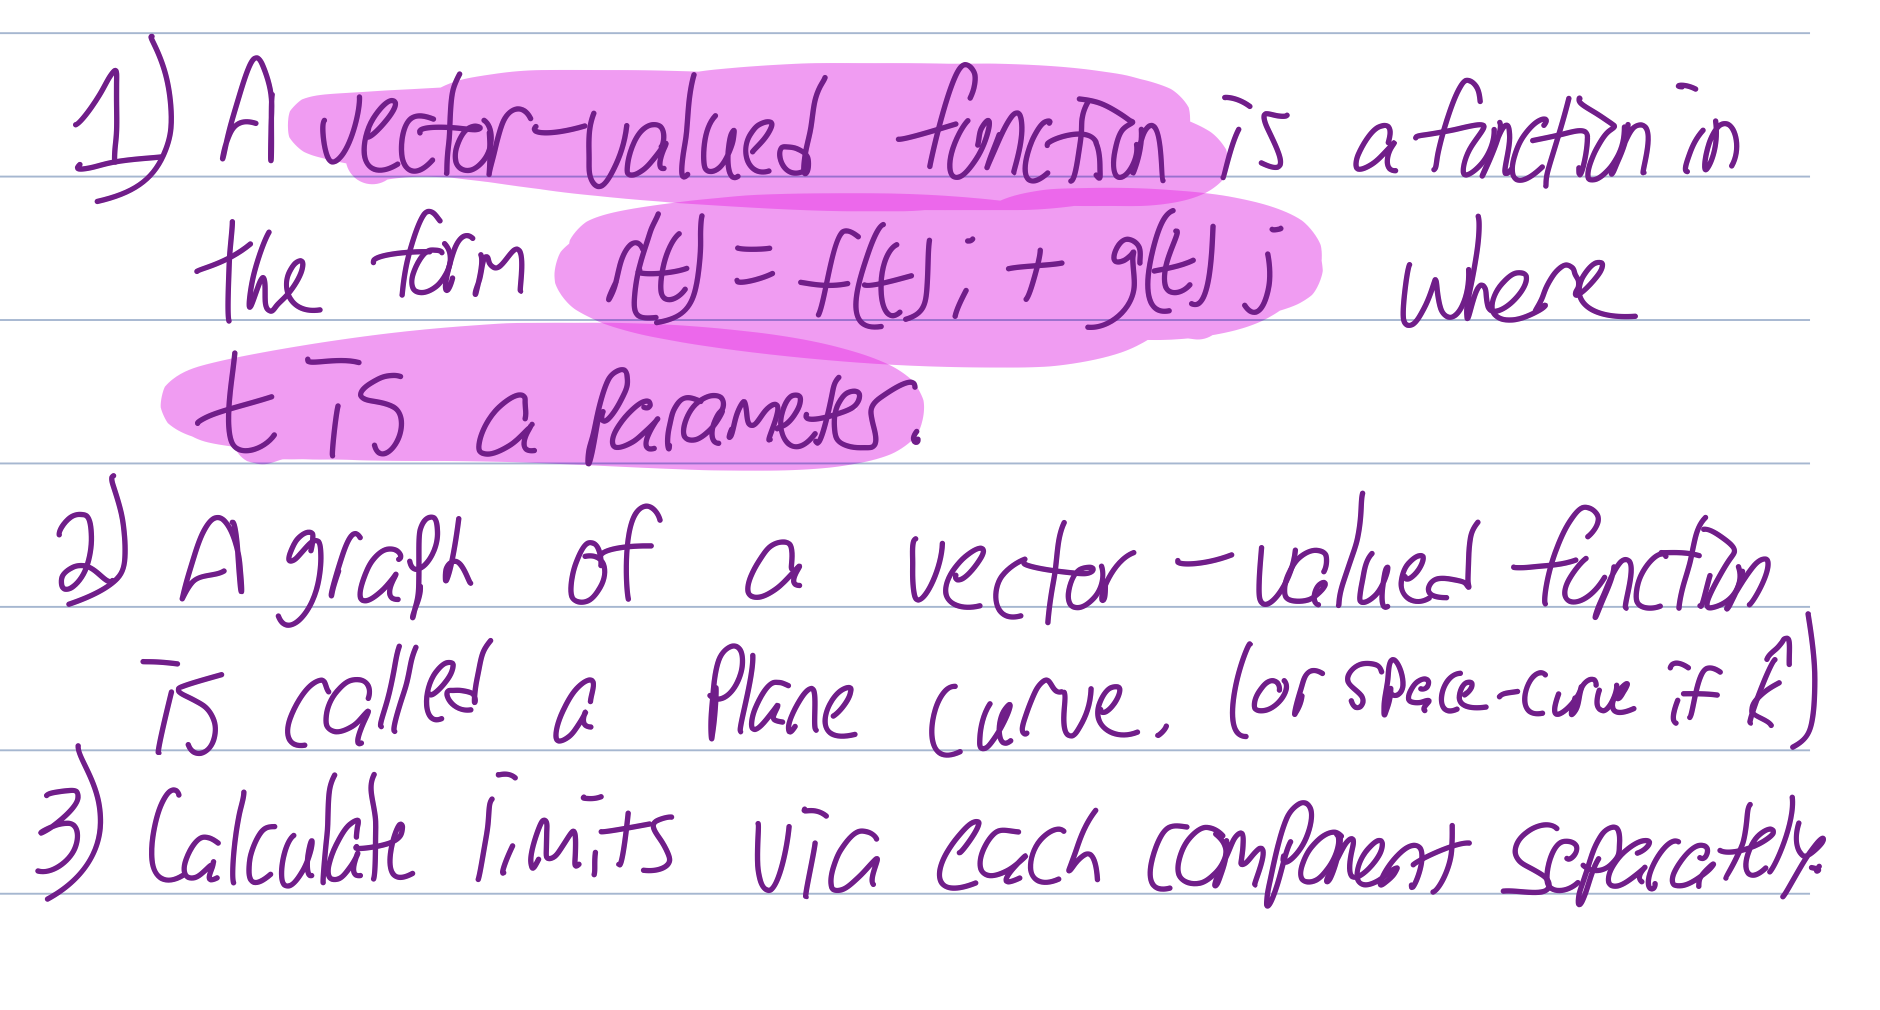 1) A vector-valued function is a function in
the form r(t) = f(t) i + g(t) j where
t is a parameter.
2) A graph of a vector-valued function
is called a plane curve. (or space-curve if k̂)
3) Calculate limits via each component separately.